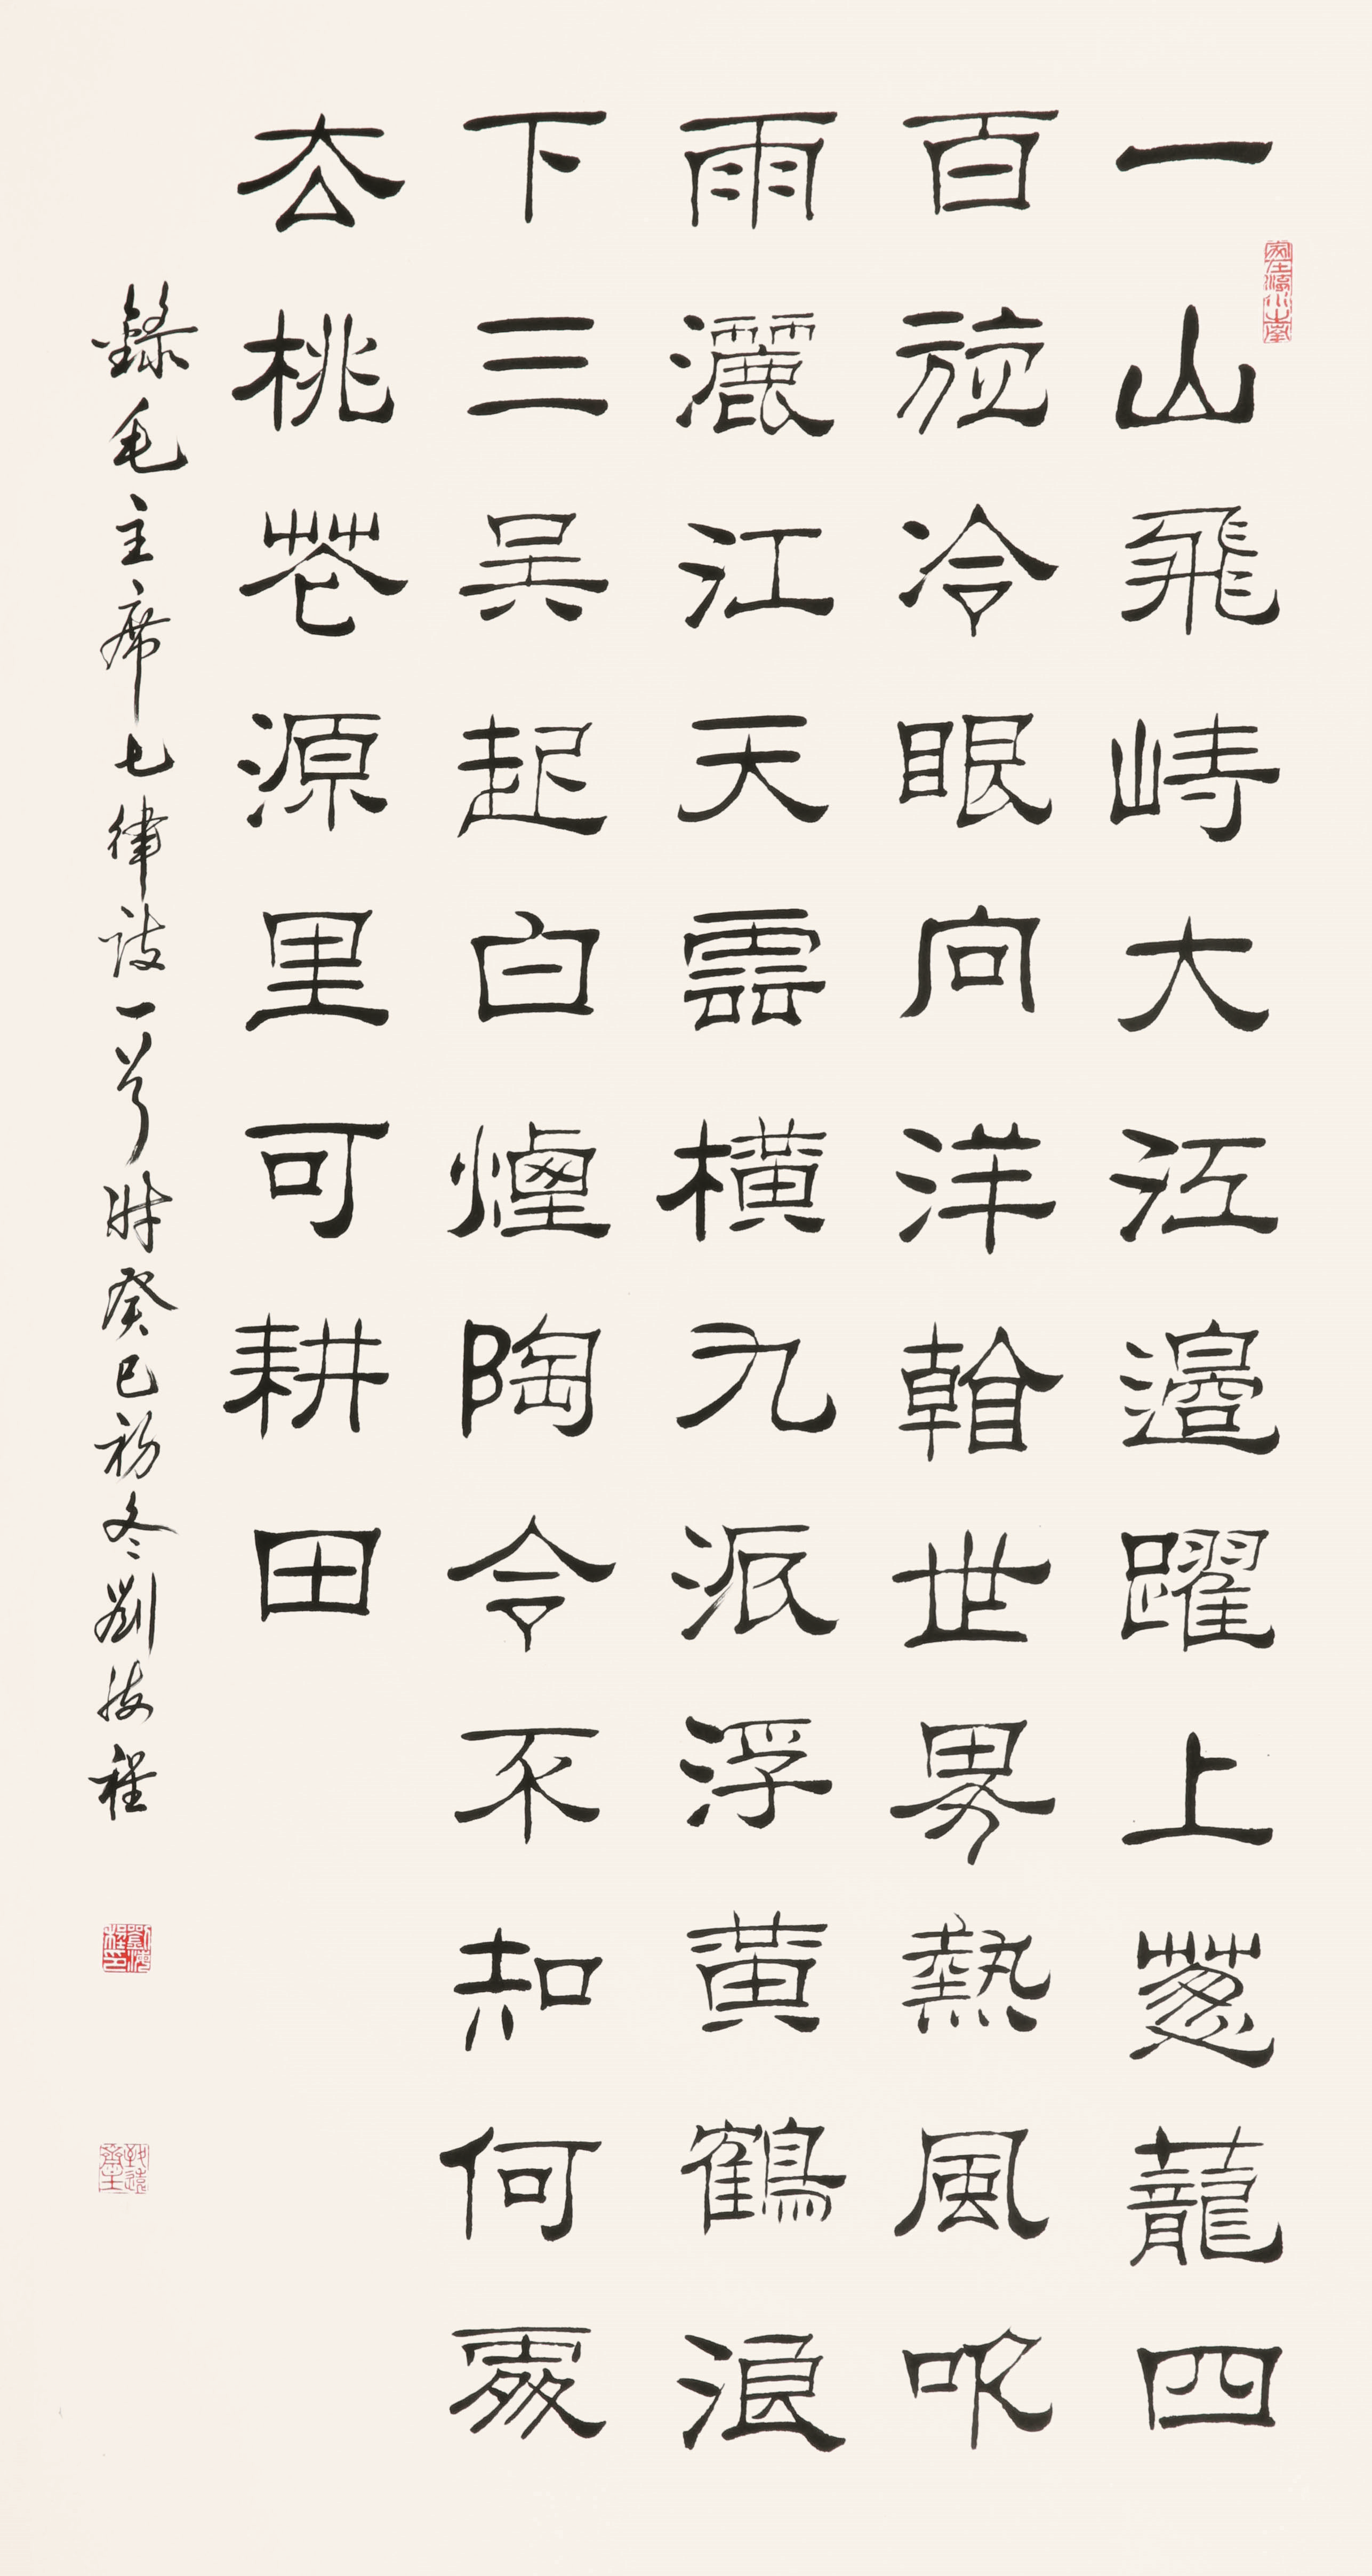 一山飛峙大江邊躍上蔥蘢四
百旋冷眼向洋看世界熱風吹
雨灑江天雲橫九派浮黃鶴浪
下三吳起白煙陶令不知何處
去桃花源里可耕田
錄毛主席七律詩一首時癸巳初冬劉海程
劉海程印
致遠齋主